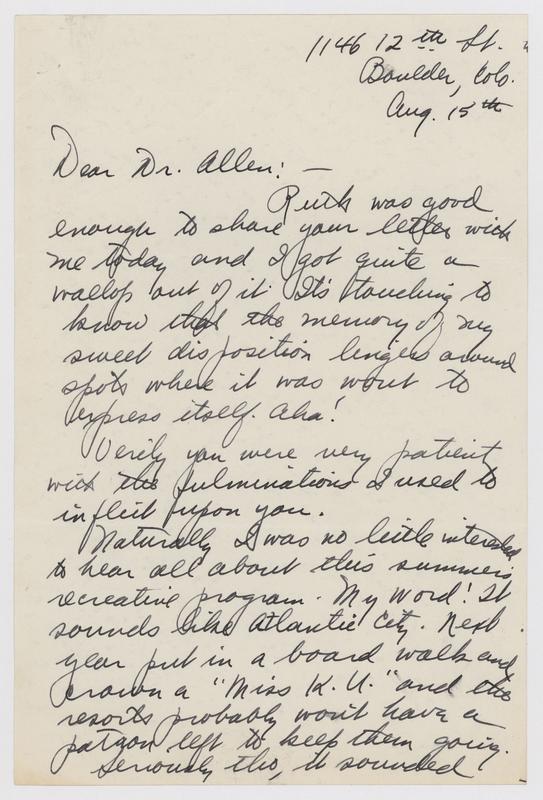 1146 12th St.
Boulder, Colo.
Aug. 15th
Dear Dr. Allen: —
Ruth was good
enough to share your letter with
me today and I got quite a
wallop out of it. It's touching to
know that the memory of my
sweet disposition lingers around
spots where it was wont to
express itself. Aha!
Verily you were very patient
with the fulminations I used to
inflict upon you.
Naturally I was no little interested
to hear all about this summer's
recreative program. My word! It
sounds like Atlantic City. Next
year put in a board walk and
crown a "Miss K.U." and the
resorts probably won't have a
patron left to keep them going.
Seriously tho, it sounded